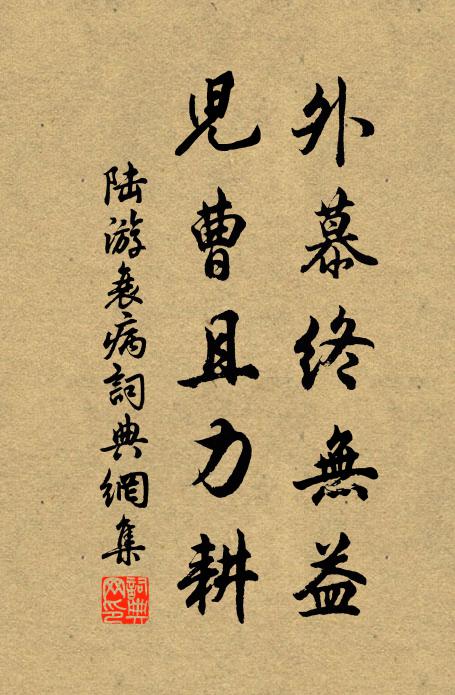 外慕終無益
兒曹且力耕
陸游衰病詞典網集
詞典網印